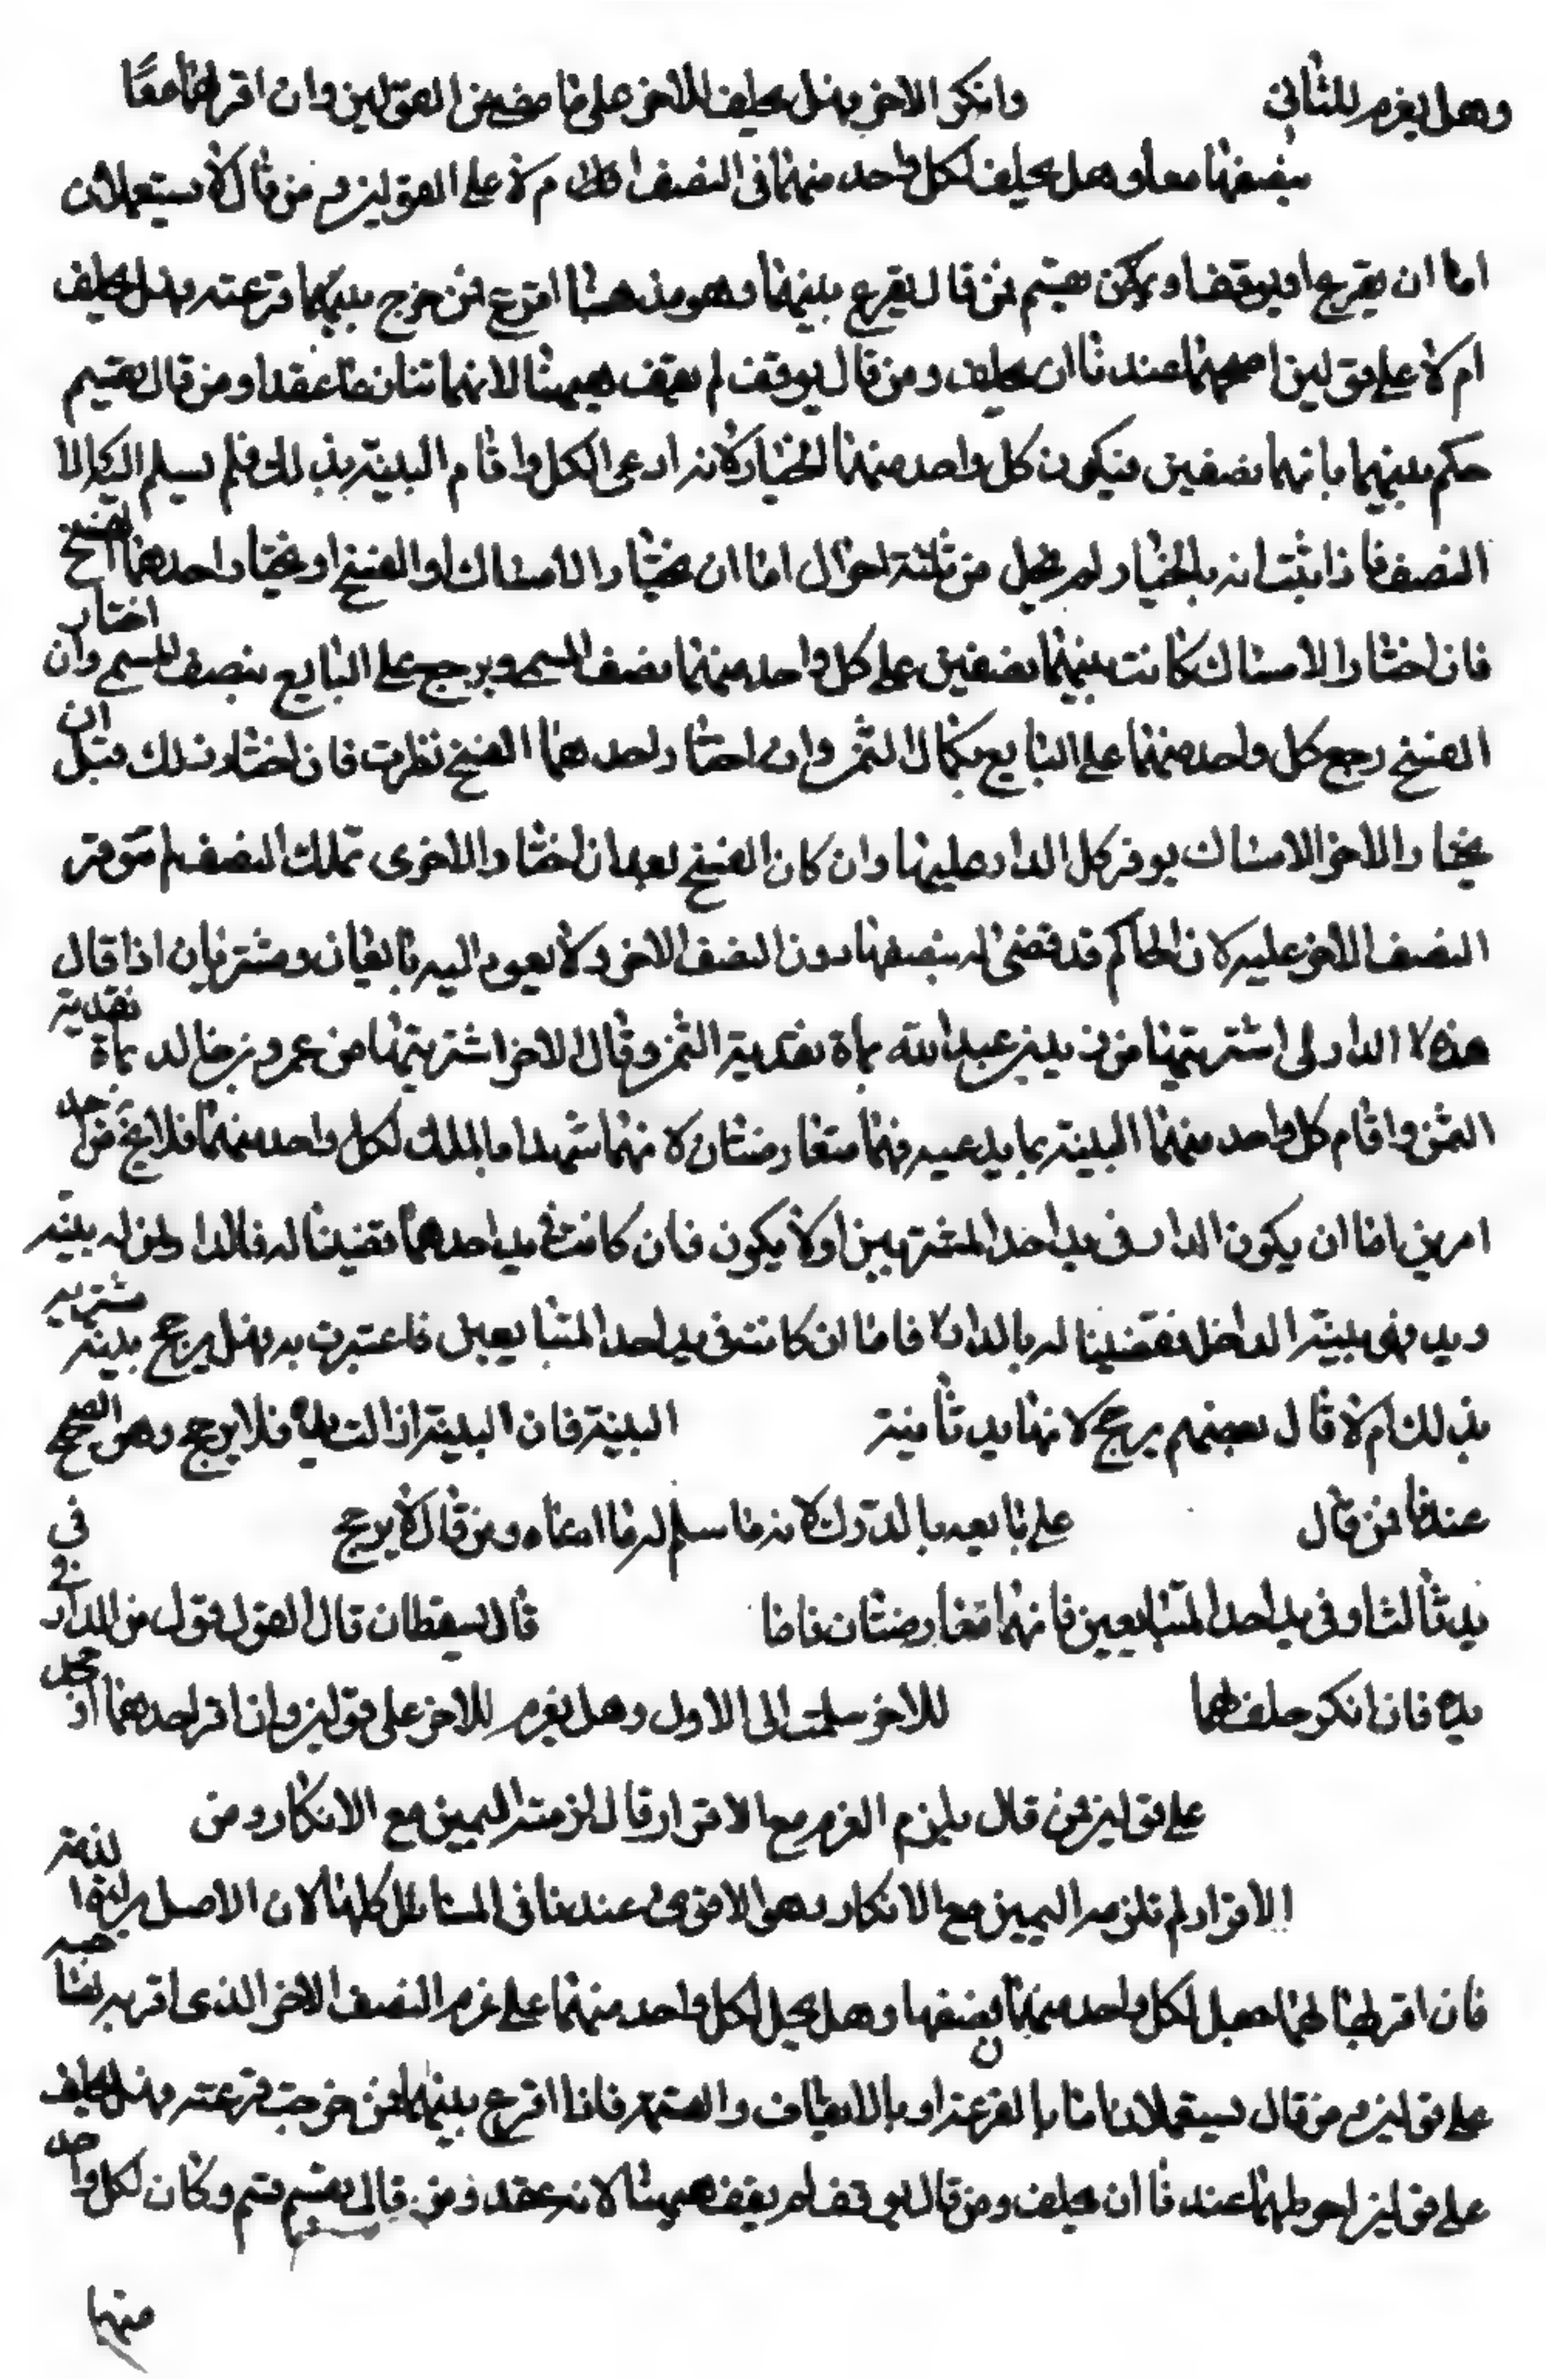 وهل يغرم للثاني وانكر الاخر وهل يحلف للاخر على ما مضى من القولين وان اقر لهما معًا
بنصفها معا وهل يحلف لكل واحد منهما في النصف ام لا على القولين ومن قال لا يستعملان
اما ان يقرع او يوقف او يقسم فمن قال يقرع بينهما وهو مذهبنا اقرع فمن خرج بينهما قرعته وهل يحلف
ام لا على قولين اصحهما عندنا ان يحلف ومن قال يوقف لم يقف هيهنا لانهما تنازعا عقدا ومن قال يقسم
حكم بينهما بانهما نصفين فيكون كل واحد منهما الخيار لانه ادعى الكل واقام البينة بذلك فلم يسلم اليه الا
النصف فاذا ثبت انه بالخيار لم يخل من ثلثة احوال اما ان يختار الامساك او الفسخ او يختار احدهما الفسخ
فان اختار الامساك كانت بينهما نصفين على كل واحد منهما نصف المسمى ويرجع على البايع بنصف المسمى وان اختار
الفسخ رجع كل واحد منهما على البايع بكمال الثمن وان اختار احدهما الفسخ نظرت فان اختار ذلك قبل ان
يختار الاخر الامساك يوفر كل الدار عليها وان كان الفسخ بعد ان اختار الاخرى تملك النصف لم يتوفر
النصف الاخر عليه لان الحاكم قد قضى له بنصفها دون النصف الاخر ولا يعود اليه بايعان ومشتريان اذا قال
هذه الدار لي اشتريتها من زيد بن عبد الله بماة نقدية الثمن وقال الاخر اشتريتها من عمرو بن خالد بماة نقدية
الثمن واقام كل واحد منهما البينة بما يدعيه فهما متعارضتان لانهما شهدا بالملك لكل واحد منهما فلا يخ من احد
امرين اما ان يكون الدار في يد احد المشتريين او لا يكون فان كانت في يد احدهما قضينا له فالدار لمن له بينة
ويد وهي بينة الداخل فقضينا له بالدار فاما ان كانت في يد احد المتبايعين فاعتبرت به وهل يرجح بينة مشتريه
بذلك ام لا قال بعضهم يرجح لانها يد ثانية البينة فان البينة ازالت يده فلا يرجح وهو الصحيح
عندنا فمن قال على بايعه بالدرك لانه ما سلم له ما ادعاه ومن قال لا يرجح في
يد ثالث او في يد احد المتبايعين فانهما متعارضتان فاما قال يسقطان قال القول قول من الدار في
يده فان انكر حلف لهما للاخر سلمت الى الاول وهل يغرم للاخر على قولين وان اقر لاحدهما او
على قولين فمن قال يلزم الغرم مع الاقرار قال لزمته اليمين مع الانكار ومن
الاقرار لم تلزمه اليمين مع الانكار وهو الاقوى عندنا في المسائل كلها لان الاصل براءة الذمة
فان اقر بها لهما جعل لكل واحد منهما نصفها وهل لكل واحد منهما على غرم النصف الاخر الذي اقر به لصاحبه
على قولين ومن قال يستعملان اما بالقرعة او بالايقاف والقسمة فاذا اقرع بينهما فمن خرجت قرعته وهل يحلف
على قولين احوطهما عندنا ان يحلف ومن قال يوقف لم يقف هيهنا لانه عقد ومن قال يقسم قسم وكان لكل واحد
منهما